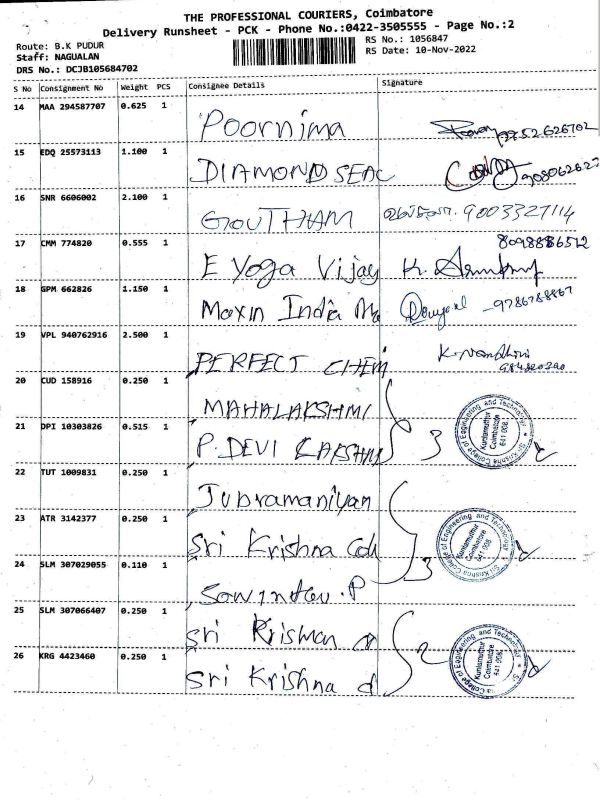 THE PROFESSIONAL COURIERS, Coimbatore
Delivery Runsheet - PCK - Phone No.:0422-3505555 - Page No.:2
Route: B.K PUDUR
Staff: NAGUALAN
DRS No.: DCJB105684702
RS No.: 1056847
RS Date: 10-Nov-2022
S No Consignment No Weight PCS Consignee Details Signature
14 MAA 294587707 0.625 1 Poornima
15 EDQ 25573113 1.100 1 DIAMOND SEAL
16 SNR 6606002 2.100 1 GOUTHAM 9003327114
17 CMM 774820 0.555 1 E Yoga Vijay K.
18 GPM 662826 1.150 1 Maxin India Ma
19 VPL 940762916 2.500 1 PERFECT CHEM K. Nandhini
20 CUD 158916 0.250 1 MAHALAKSHMI
21 DPI 10303826 0.515 1 P. DEVI LAKSHMI 3 Sri Krishna College of Engineering and Technology Kuniamuthur Coimbatore 641 008.
22 TUT 1009831 0.250 1 Subramaniyan
23 ATR 3142377 0.250 1 Sri Krishna 3 Sri Krishna College of Engineering and Technology Kuniamuthur Coimbatore 641 008
24 SLM 307029055 0.110 1
25 SLM 307066407 0.250 1 Sri 2 Sri Krishna College of Engineering and Technology Kuniamuthur Coimbatore 641 008.
26 KRG 4423460 0.250 1 Sri Krishna